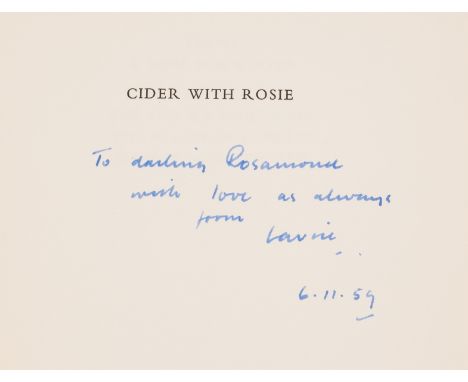 CIDER WITH ROSIE
To darling Rosamond
with love as always
from
Laurie
6.11.59